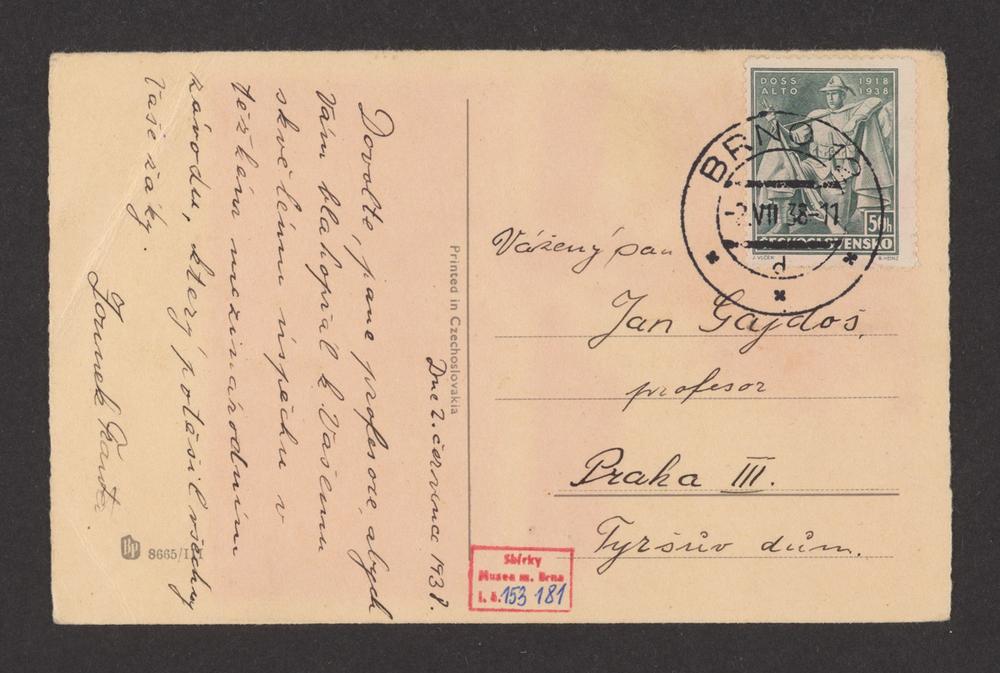 Dne 2. července 1938.
Dovolte, pane profesore, abych
Vám blahopřál k Vašemu
skvělému úspěchu v
těžkém mezinárodním
závodu, který potěšil všechny
Vaše žáky.
Zounek
8665/III
Printed in Czechoslovakia
DOSS ALTO
1918
1938
50h
ČESKOSLOVENSKO
J. VLČEK
B. HEINZ
BRNO
-2.VII 38-11
d
Vážený pan
Jan Gajdoš,
profesor
Praha III.
Tyršův dům.
Sbírky
Musea m. Brna
i. č. 153 181